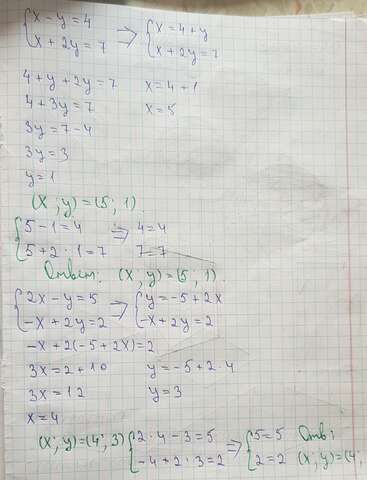 {x - y = 4 => {x = 4 + y
{x + 2y = 7 {x + 2y = 7
4 + y + 2y = 7 x = 4 + 1
4 + 3y = 7 x = 5
3y = 7 - 4
3y = 3
y = 1
(x; y) = (5; 1)
{5 - 1 = 4 => 4 = 4
{5 + 2 · 1 = 7 7 = 7
Ответ: (x; y) = (5; 1).
{2x - y = 5 => {y = -5 + 2x
{-x + 2y = 2 {-x + 2y = 2
-x + 2(-5 + 2x) = 2
3x = 2 + 10 y = -5 + 2 · 4
3x = 12 y = 3
x = 4
(x; y) = (4; 3) {2 · 4 - 3 = 5 => {5 = 5 Отв:
{-4 + 2 · 3 = 2 {2 = 2 (x; y) = (4;